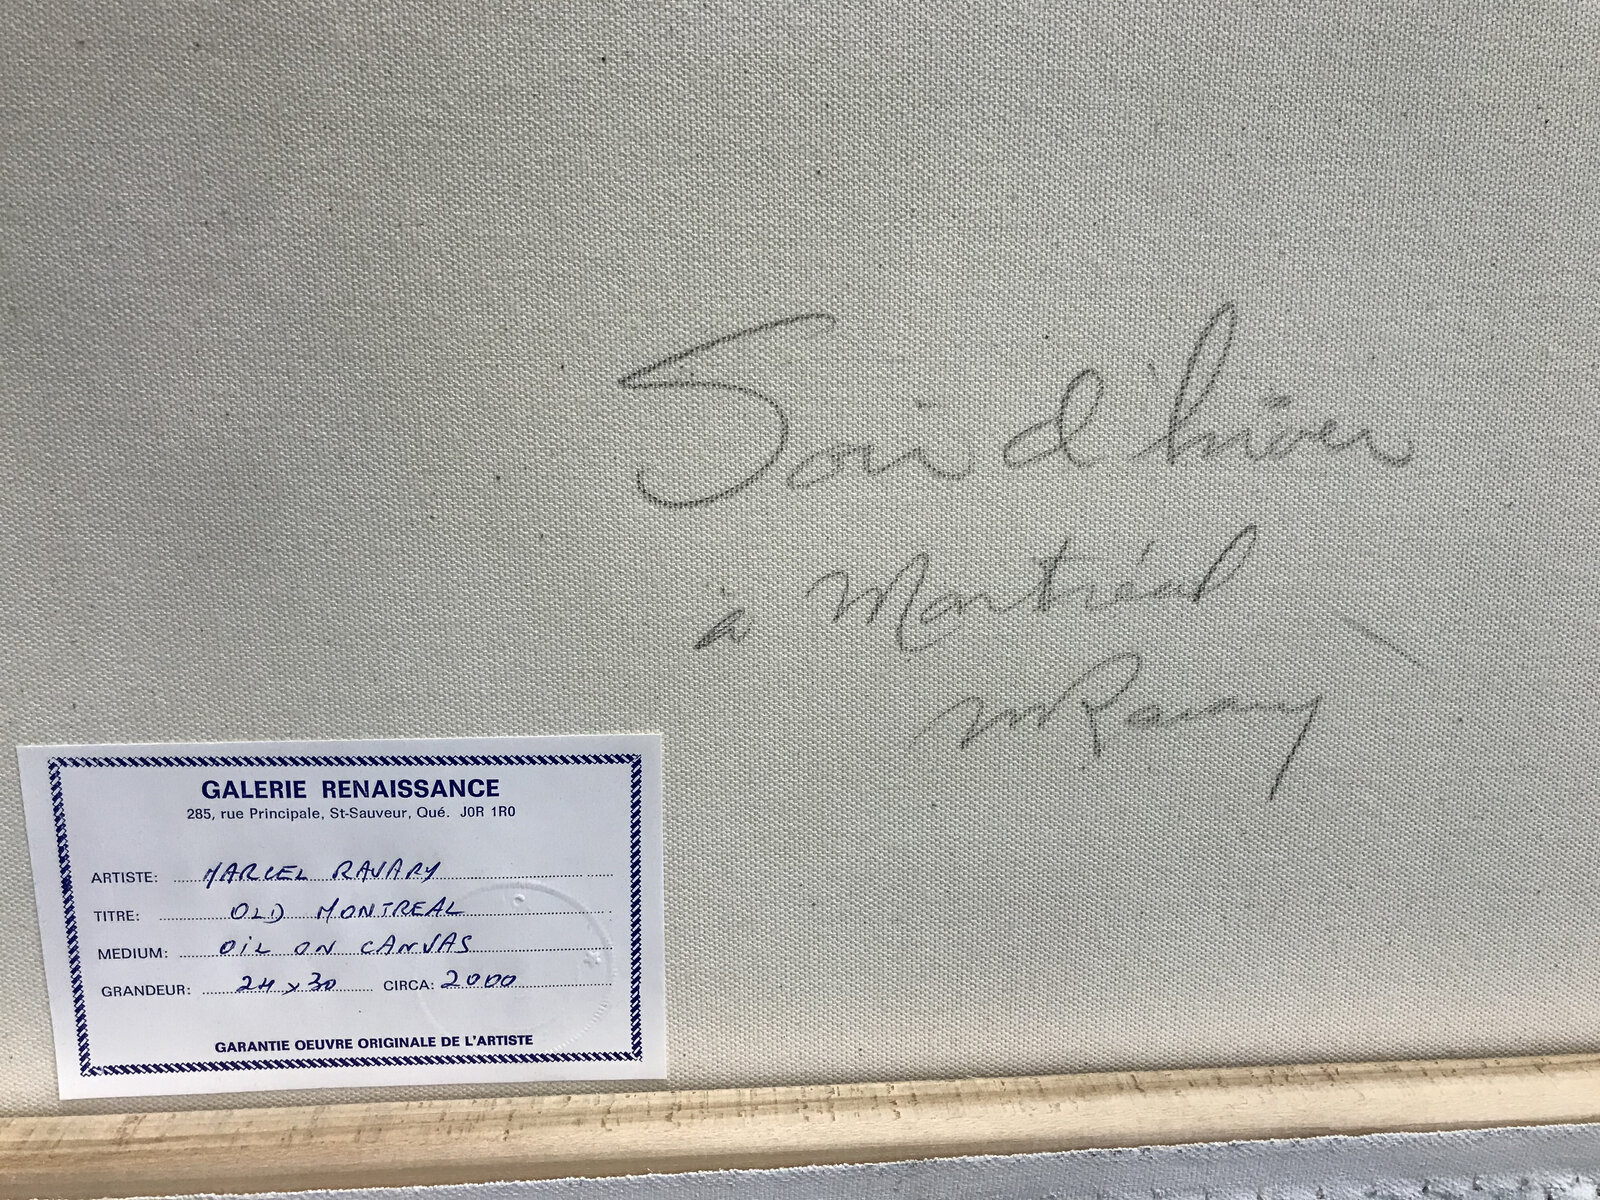 Soir d'hiver
à Montréal
M Ravary
GALERIE RENAISSANCE
285, rue Principale, St-Sauveur, Qué. J0R 1R0
ARTISTE: MARCEL RAVARY
TITRE: OLD MONTREAL
MEDIUM: OIL ON CANVAS
GRANDEUR: 24 x 30 CIRCA: 2000
GARANTIE OEUVRE ORIGINALE DE L'ARTISTE